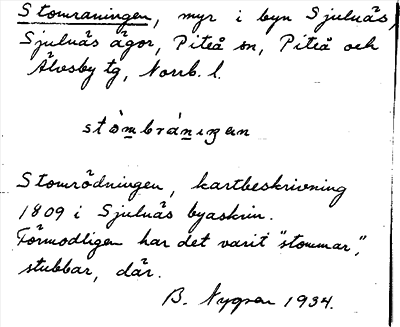 Stomraningen, myr i byn Sjulnäs,
Sjulnäs ägor, Piteå sn, Piteå och
Älvsby tg, Norrb. l.
Stomrödningen, kartbeskrivning
1809 i Sjulnäs byaskrin.
Förmodligen har det varit "stommar",
stubbar, där.
B. Nygren 1934.